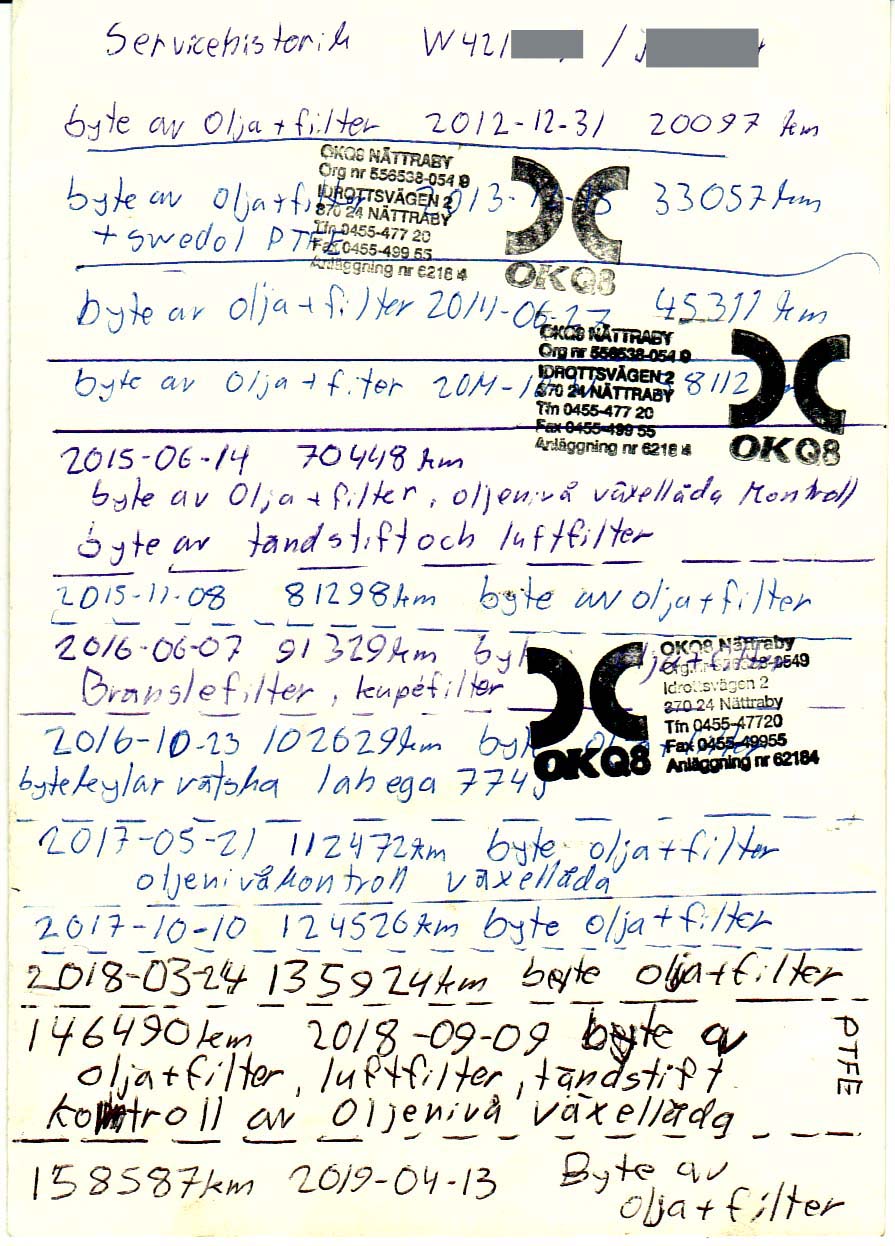 Servicehistorik W421 /
byte av olja + filter 2012-12-31 20097 km
OKQ8 NÄTTRABY
Org nr 556538-054 9
IDROTTSVÄGEN 2
370 24 NÄTTRABY
Tfn 0455-477 20
Fax 0455-499 55
Anläggning nr 6218 4
OKQ8
byte av olja + filter 33057 km
+ swedol PTFE
byte av olja + filter 2014-06-27 45311 km
OKQ8 NÄTTRABY
Org nr 556538-054 9
IDROTTSVÄGEN 2
370 24 NÄTTRABY
Tfn 0455-477 20
Fax 0455-499 55
Anläggning nr 6218 4
OKQ8
byte av olja + filter 8112
2015-06-14 70448 km
byte av olja + filter, oljenivå växellåda kontroll
byte av tändstift och luftfilter
2015-11-08 81298 km byte av olja + filter
2016-06-07 91329 km olja + filter
Bränslefilter, kupéfilter
OKQ8
OKQ8 Nättraby
Idrottsvägen 2
370 24 Nättraby
Tfn 0455-47720
Fax 0455-49955
Anläggning nr 62184
2016-10-23 102629 km
byte kylar vätska lahega 774
2017-05-21 112472 km byte olja + filter
oljenivåkontroll växellåda
2017-10-10 124526 km byte olja + filter
2018-03-24 135924 km byte olja + filter
146490 km 2018-09-09 byte av
olja + filter, luftfilter, tändstift
kontroll av oljenivå växellåda
PTFE
158587 km 2019-04-13 Byte av
olja + filter